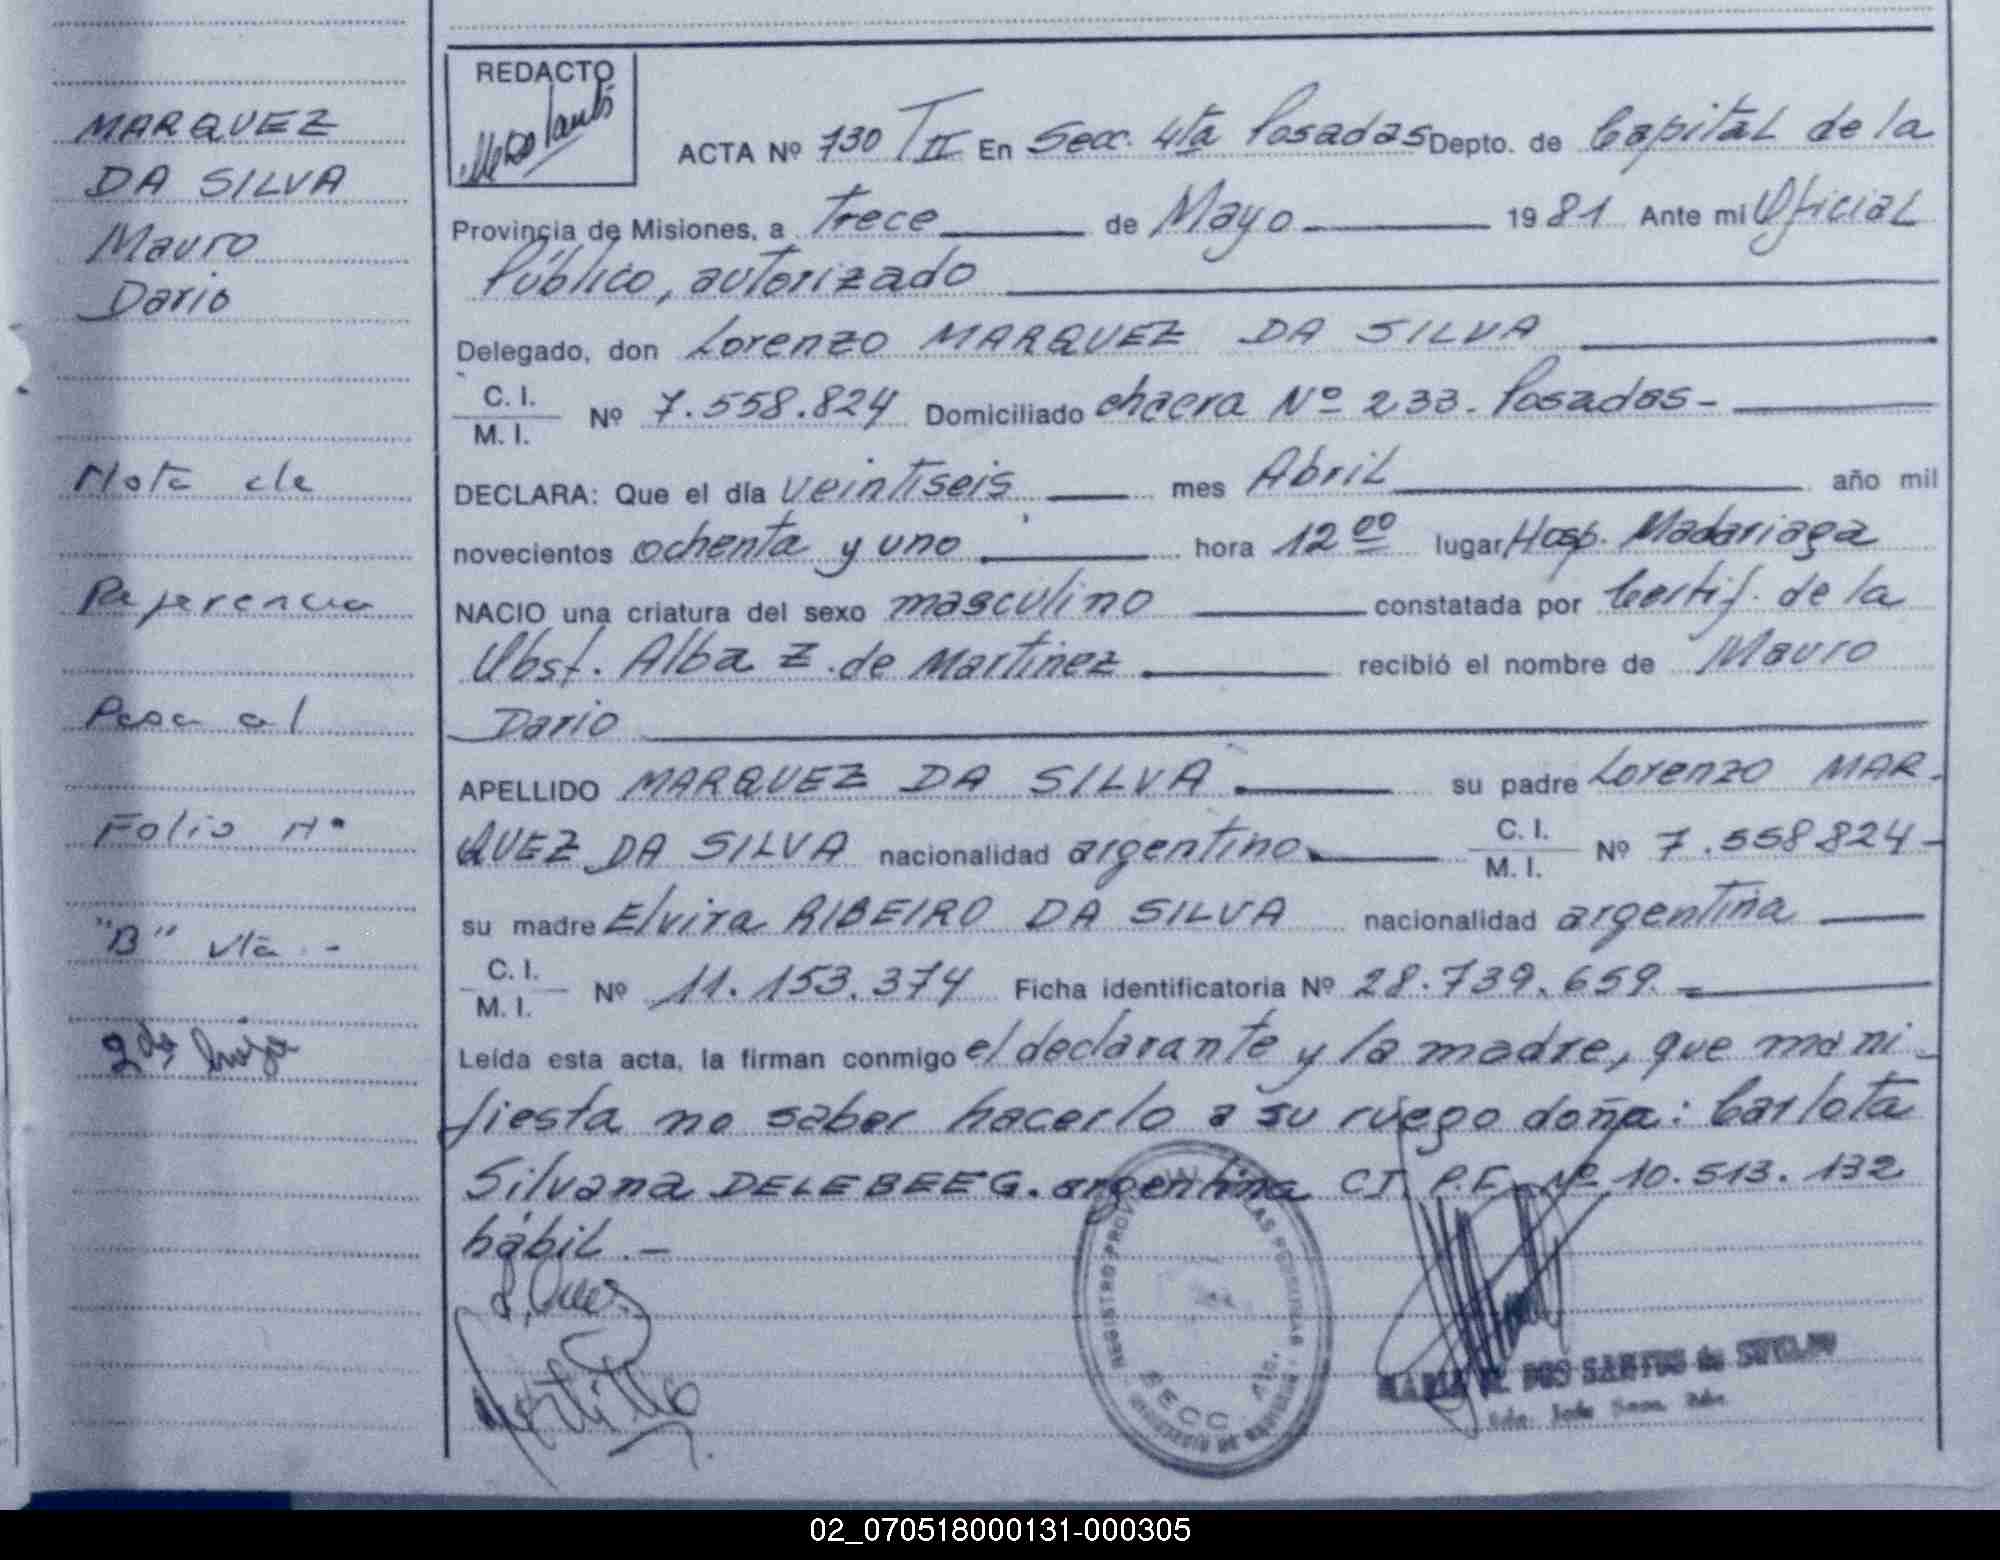 MARQUEZ
DA SILVA
Mauro
Dario
Nota de
Referencia
Pasa al
Folio Nº
"B" vta -
REDACTO
ACTA Nº 730 T II En Secc. 4ta Posadas Depto. de Capital de la
Provincia de Misiones, a Trece de Mayo 1981 Ante mi Oficial
Público, autorizado
Delegado, don Lorenzo MARQUEZ DA SILVA
C. I.
M. I. Nº 7.558.824 Domiciliado chacra Nº 233. Posadas-
DECLARA: Que el día veintiseis mes Abril año mil
novecientos ochenta y uno hora 12 00 lugar Hosp. Madariaga
NACIO una criatura del sexo masculino constatada por Certif. de la
Obst. Alba Z. de Martinez recibió el nombre de Mauro
Dario
APELLIDO MARQUEZ DA SILVA su padre Lorenzo MAR-
QUEZ DA SILVA nacionalidad argentino C. I.
M. I. Nº 7.558824-
su madre Elvira RIBEIRO DA SILVA nacionalidad argentina
C. I.
M. I. Nº 11.153.374 Ficha identificatoria Nº 28.739.659.
Leída esta acta, la firman conmigo el declarante y la madre, que mani-
fiesta no saber hacerlo a su ruego doña: Carlota
Silvana DELEBEEG. argentina CI. P.F. Nº 10.513.132
hábil.-
REGISTRO PROVINCIAL DE LAS PERSONAS
SECC. 4ta.
DOS SANTOS de SOTELO
02_070518000131-000305